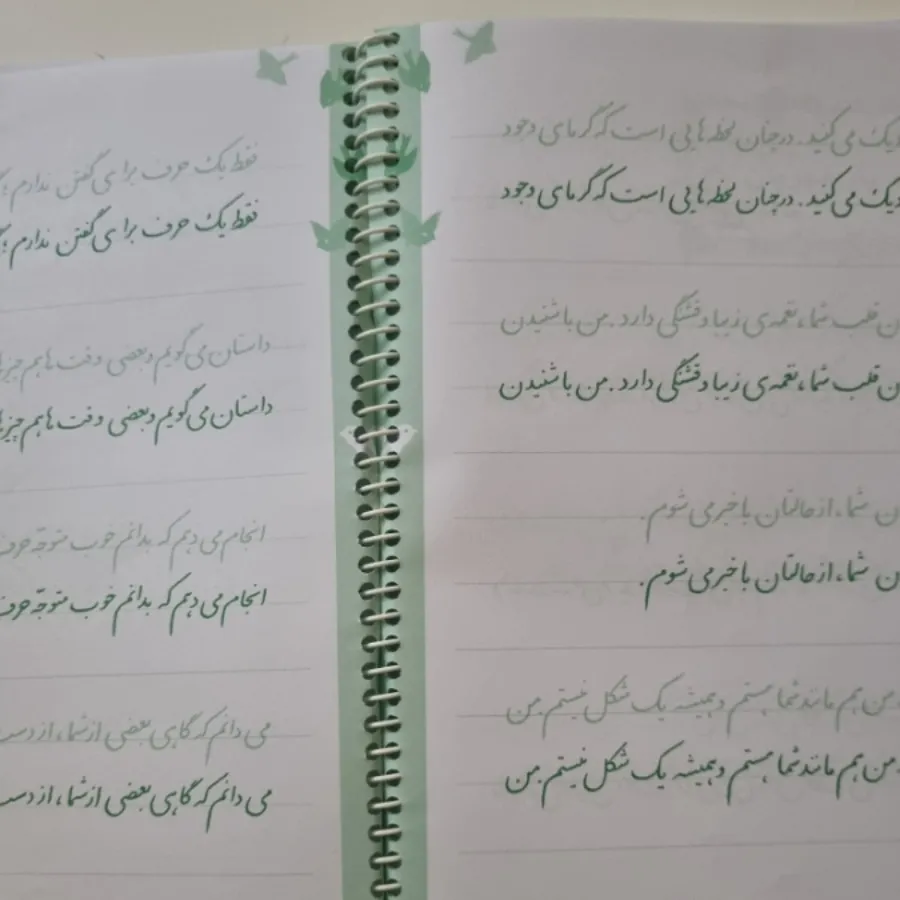 یک می‌کنید. در چنان لحظه‌هایی است که گرمای وجود
یک می‌کنید. در چنان لحظه‌هایی است که گرمای وجود
قلب شما، نغمه‌ی زیبا و قشنگی دارد. من با شنیدن
قلب شما، نغمه‌ی زیبا و قشنگی دارد. من با شنیدن
شما، از حالتان با خبر می‌شوم.
شما، از حالتان با خبر می‌شوم.
من هم مانند شما هستم و همیشه یک شکل نیستم. من
من هم مانند شما هستم و همیشه یک شکل نیستم. من
فقط یک حرف برای گفتن ندارم؛
فقط یک حرف برای گفتن ندارم؛
داستان می‌گویم و بعضی وقت‌ها هم
داستان می‌گویم و بعضی وقت‌ها هم
انجام می‌دهم که بدانم خوب متوجّه حرف
انجام می‌دهم که بدانم خوب متوجّه حرف
می‌دانم که گاهی بعضی از شما، از دست
می‌دانم که گاهی بعضی از شما، از دست